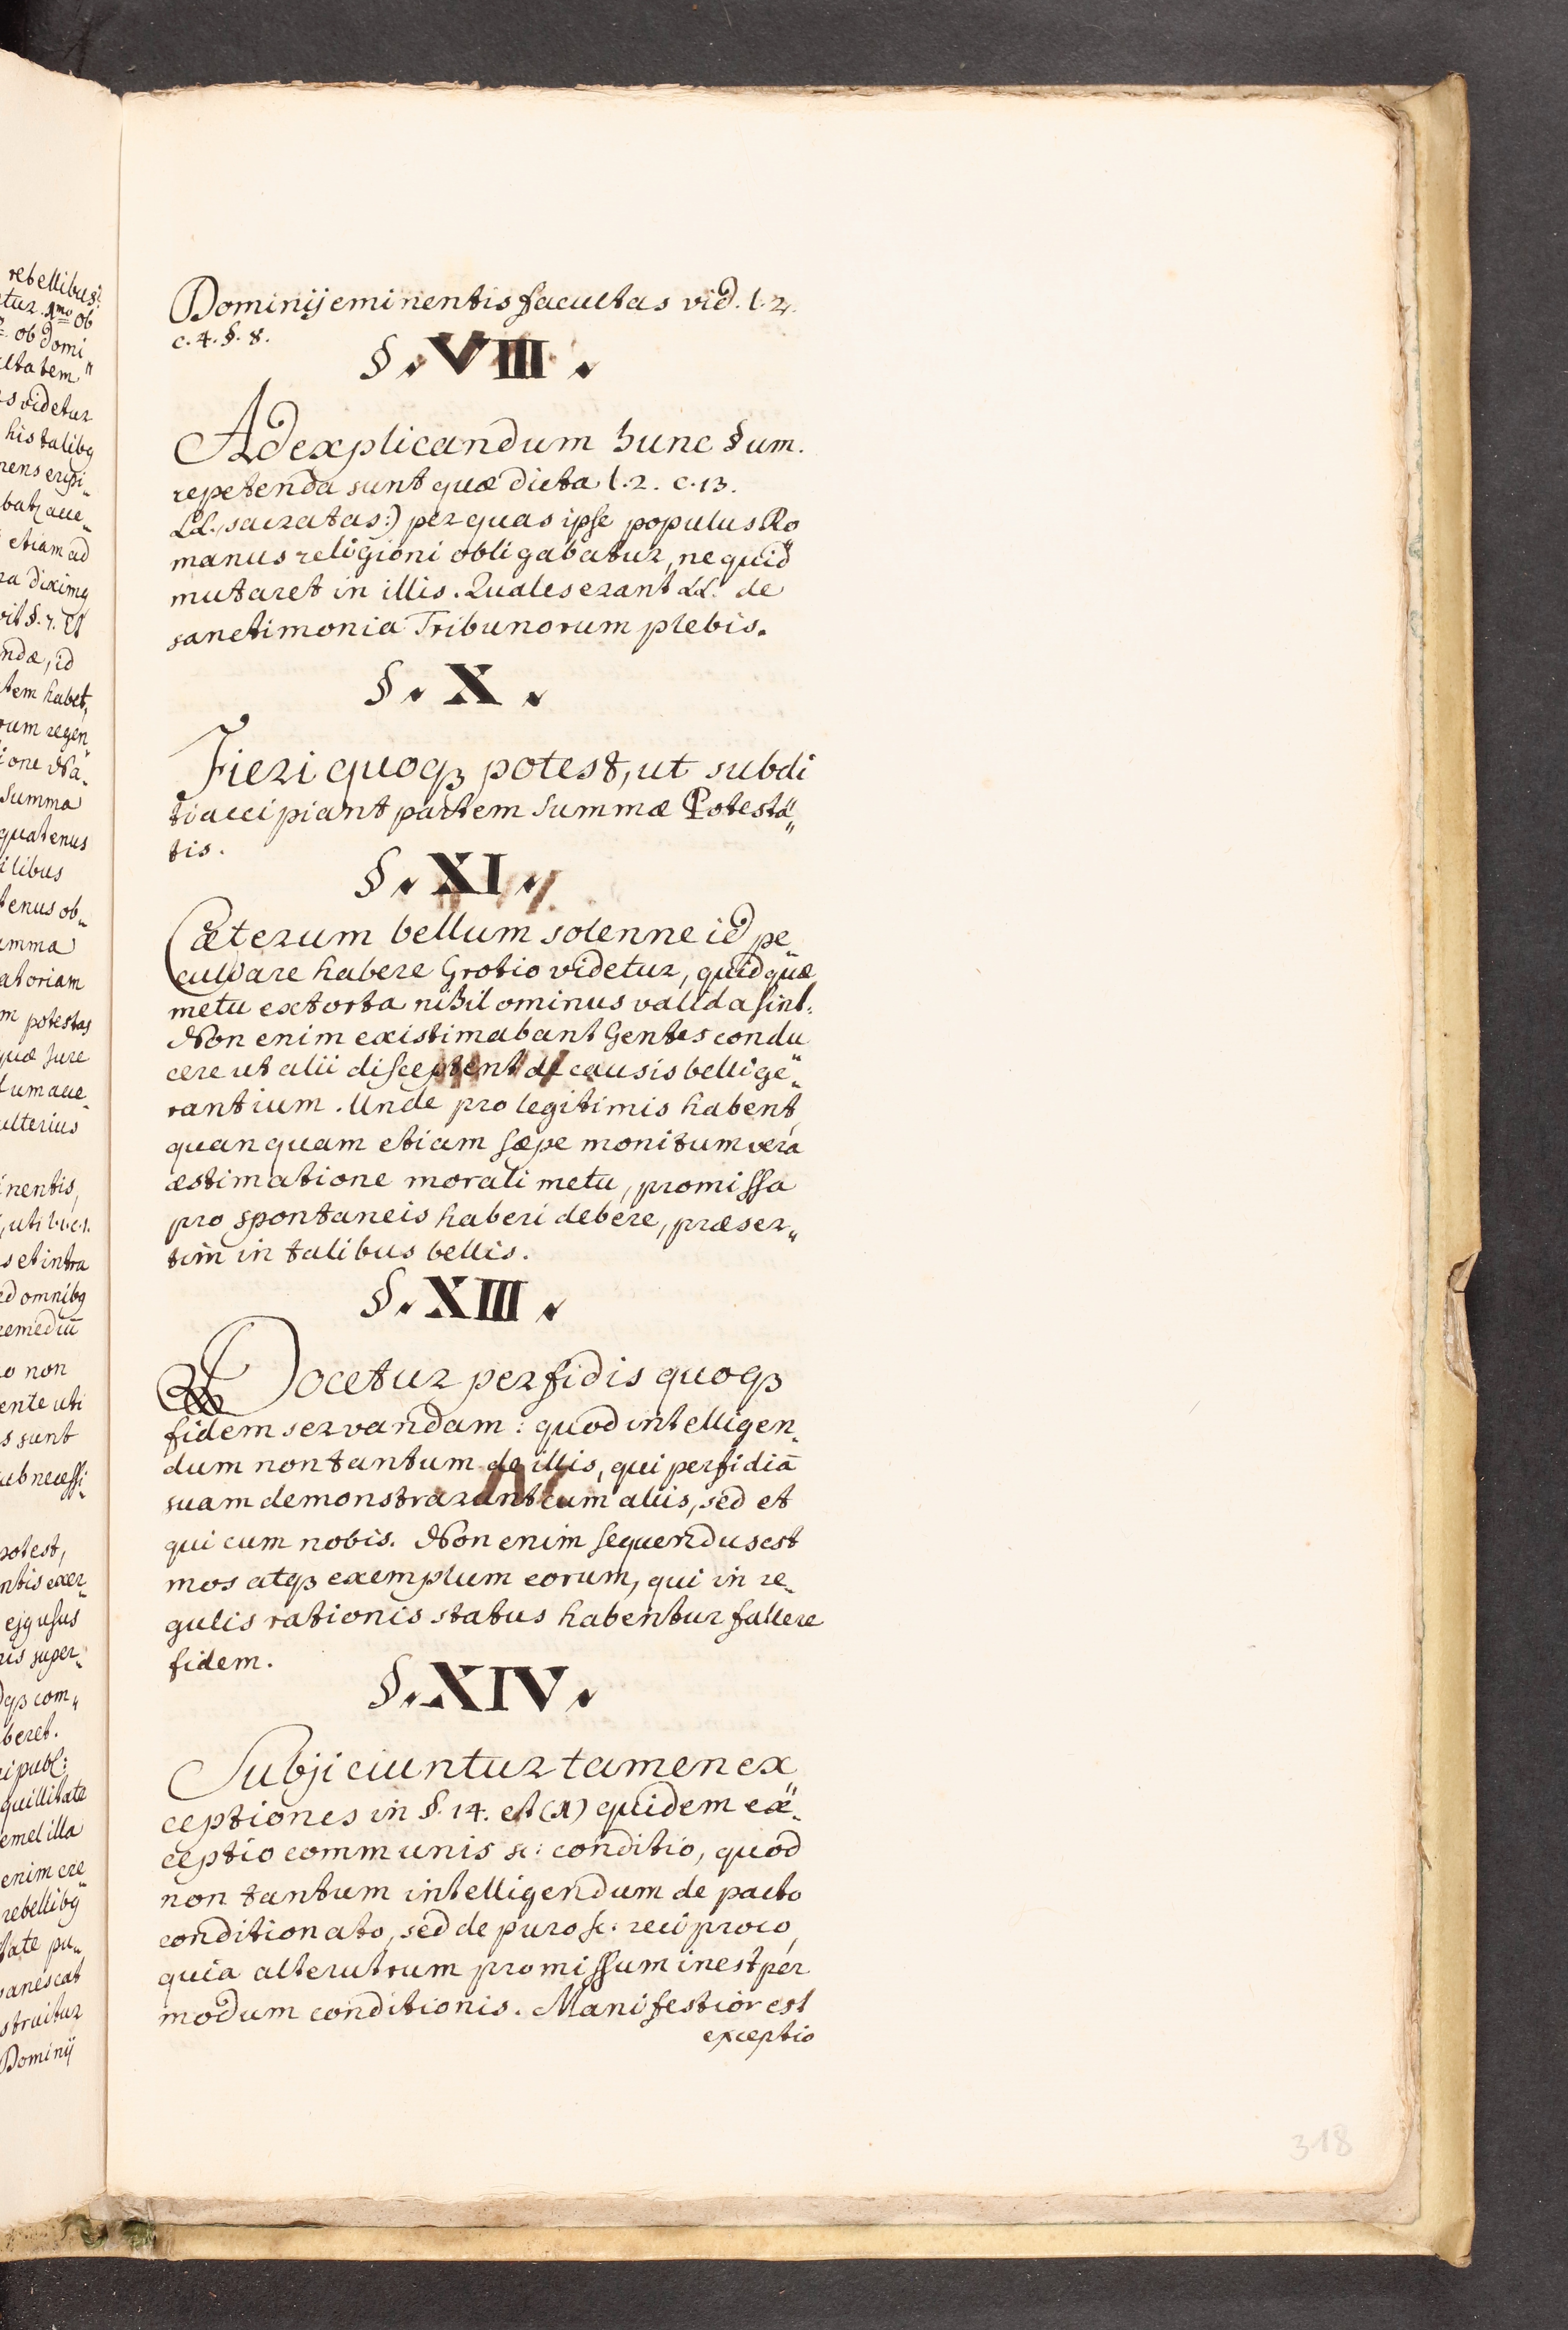 rebellibus
etur. 1mo ob
ob Domi
ltatem
s videtur
his talibꝰ
nens eripi
bat, aue
etiam ad
ra diximꝰ
vit §. 7. Et
ndæ, id
tem habet,
rum regen
ione Na
summa
quatenus
ilibus
tenus ob
umma
atoriam
m potestas
quæ jure
dum aue
ulterius
inentis,
, uti l. 1. c. 1.
s et intra
ed omnibꝰ
remediū
o non
ente uti
s sunt
ub necessi
potest,
ntis exer
ejꝰ usus
ris super
dqȝ com
beret.
i publ:
quillitate
emel illa
enim ere
rebellibꝰ
tate pu
vanescat
struitur
Dominij
Dominij eminentis facultas vid. l. 2.
c. 4. §. 8.
§. VIII.
Ad explicandum hunc §um.
repetenda sunt quæ dicta l. 2. c. 13.
LL. sacratas:) per quas ipse populus Ro
manus religioni obligabatur, ne quid
mutaret in illis. Quales erant LL. de
sanctimonia Tribunorum plebis.
§. X.
Fieri quoqȝ potest, ut subdi
ti accipiant partem summæ Potesta„
tis.
§. XI.
Cæterum bellum solenne id pe„
culiare habere Grotio videtur, quid quæ
metu extorta nihilominus valida sint.
Non enim existimabant Gentes condu
cere ut alii disceptent de causis bellige„
rantium. Unde pro legitimis habent,
quanquam etiam sæpe monitum vera
æstimatione morali metu, promissa
pro spontaneis haberi debere, præser„
tim in talibus bellis.
§. XIII.
Docetur perfidis quoqȝ
fidem servandam: quod intelligen„
dum non tantum de illis, qui perfidiā
suam demonstrarunt cum aliis, sed et
qui cum nobis. Non enim sequendus est
mos atqȝ exemplum eorum, qui in re„
gulis rationis status habentur fallere
fidem.
§. XIV.
Subjiciuntur tamen ex
ceptiones in §. 14. et (1) quidem ex„
ceptio communis sc: conditio, quod
non tantum intelligendum de pacto
conditionato, sed de puro sc: reciproco,
quia alterutrum promissum inest per
modum conditionis. Manifestior est
exceptio
318